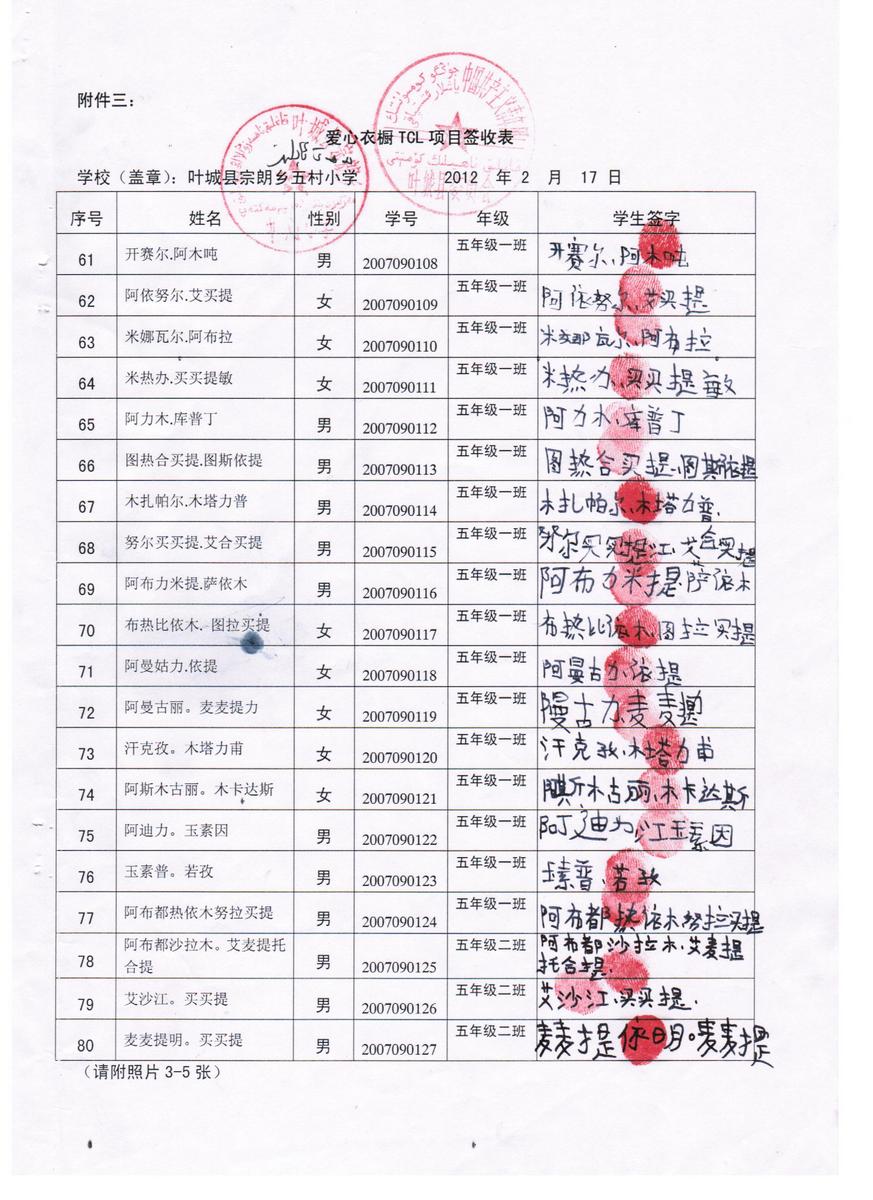 附件三：
爱心衣橱 TCL 项目签收表
学校（盖章）：叶城县宗朗乡五村小学 2012 年 2 月 17 日
序号 姓名 性别 学号 年级 学生签字
61 开赛尔.阿木吨 男 2007090108 五年级一班 开赛尔.阿木吨
62 阿依努尔.艾买提 女 2007090109 五年级一班 阿依努尔.艾买提
63 米娜瓦尔.阿布拉 女 2007090110 五年级一班 米娜瓦尔.阿布拉
64 米热办.买买提敏 女 2007090111 五年级一班 米热办.买买提敏
65 阿力木.库普丁 男 2007090112 五年级一班 阿力木.库普丁
66 图热合买提.图斯依提 男 2007090113 五年级一班 图热合买提.图斯依提
67 木扎帕尔.木塔力普 男 2007090114 五年级一班 木扎帕尔.木塔力普.
68 努尔买买提.艾合买提 男 2007090115 五年级一班 努尔买买提江.艾合买提
69 阿布力米提.萨依木 男 2007090116 五年级一班 阿布力米提.萨依木
70 布热比依木.图拉买提 女 2007090117 五年级一班 布热比依木.图拉买提
71 阿曼姑力.依提 女 2007090118 五年级一班 阿曼古力.依提
72 阿曼古丽。麦麦提力 女 2007090119 五年级一班 古力.麦麦提
73 汗克孜。木塔力甫 女 2007090120 五年级一班 汗克孜.木塔力甫
74 阿斯木古丽。木卡达斯 女 2007090121 五年级一班 木古丽.木卡达斯
75 阿迪力。玉素因 男 2007090122 五年级一班 阿迪力江玉素因
76 玉素普。若孜 男 2007090123 五年级一班 玉素普.若孜
77 阿布都热依木努拉买提 男 2007090124 五年级一班 阿布都热依木努拉买提
78 阿布都沙拉木。艾麦提托合提 男 2007090125 五年级二班 阿布都沙拉木.艾麦提
托合提.
79 艾沙江。买买提 男 2007090126 五年级二班 艾沙江.买买提.
80 麦麦提明。买买提 男 2007090127 五年级二班 麦麦提依明。麦麦提
（请附照片 3-5 张）